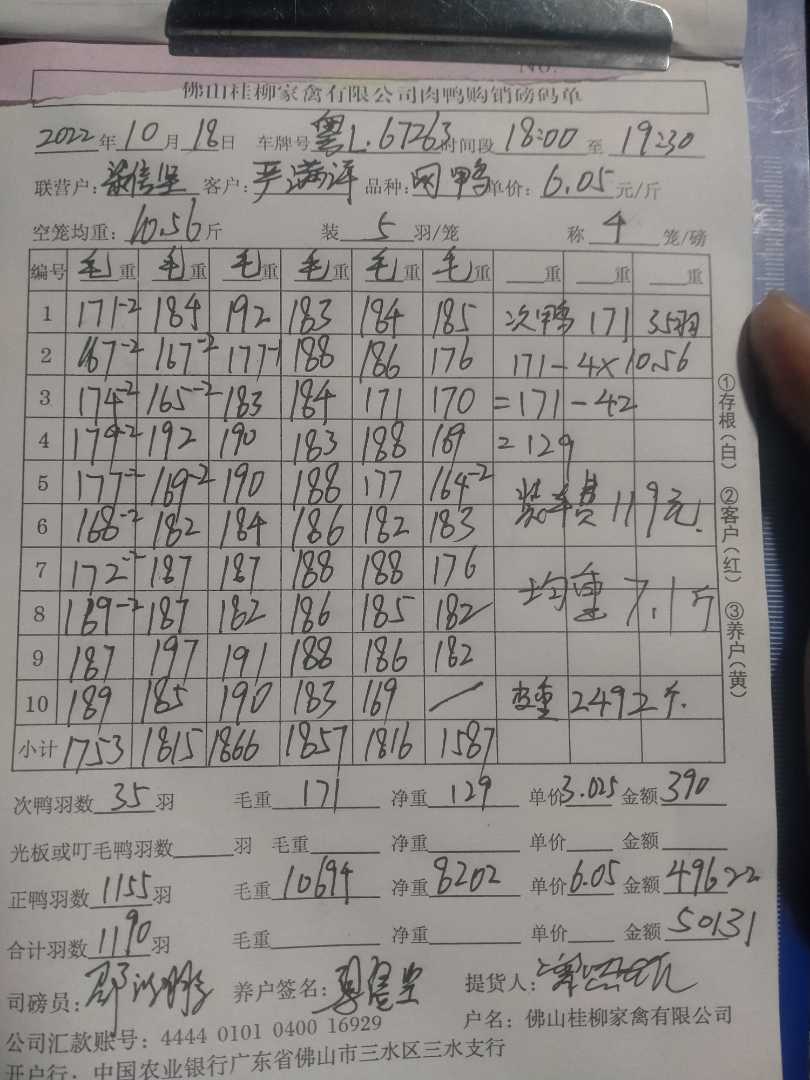 NO.
佛山桂柳家禽有限公司肉鸭购销磅码单
2022年10月18日 车牌号粤L.67263时间段18:00至19:30
联营户: 客户:严满洋 品种:网鸭 单价:6.05元/斤
空笼均重:10.56斤 装5羽/笼 称4笼/磅
编号 毛重 毛重 毛重 毛重 毛重 毛重 重 重 重
1 171-2 184 192 183 184 185 次鸭 171 35羽
2 167-2 167-2 177-1 188 186 176 171-4×10.56
3 174-2 165-2 183 184 171 170 =171-42
4 179-2 192 190 183 188 169 =129
5 177-2 169-2 190 188 177 164-2
6 168-2 182 184 186 182 183 装车费119元.
7 172-2 187 187 188 188 176
8 169-2 187 182 186 185 182 均重7.1斤
9 187 197 191 188 186 182
10 189 185 190 183 169 — 皮重 2492斤.
小计 1753 1815 1866 1857 1816 1587
次鸭羽数35羽 毛重171 净重129 单价3.025 金额390
光板或叮毛鸭羽数 羽 毛重 净重 单价 金额
正鸭羽数1155羽 毛重10694 净重8202 单价6.05 金额49622
合计羽数1190羽 毛重 净重 单价 金额50131
司磅员: 养户签名: 提货人:
公司汇款账号: 4444 0101 0400 16929 户名: 佛山桂柳家禽有限公司
开户行: 中国农业银行广东省佛山市三水区三水支行
①存根(白) ②客户(红) ③养户(黄)